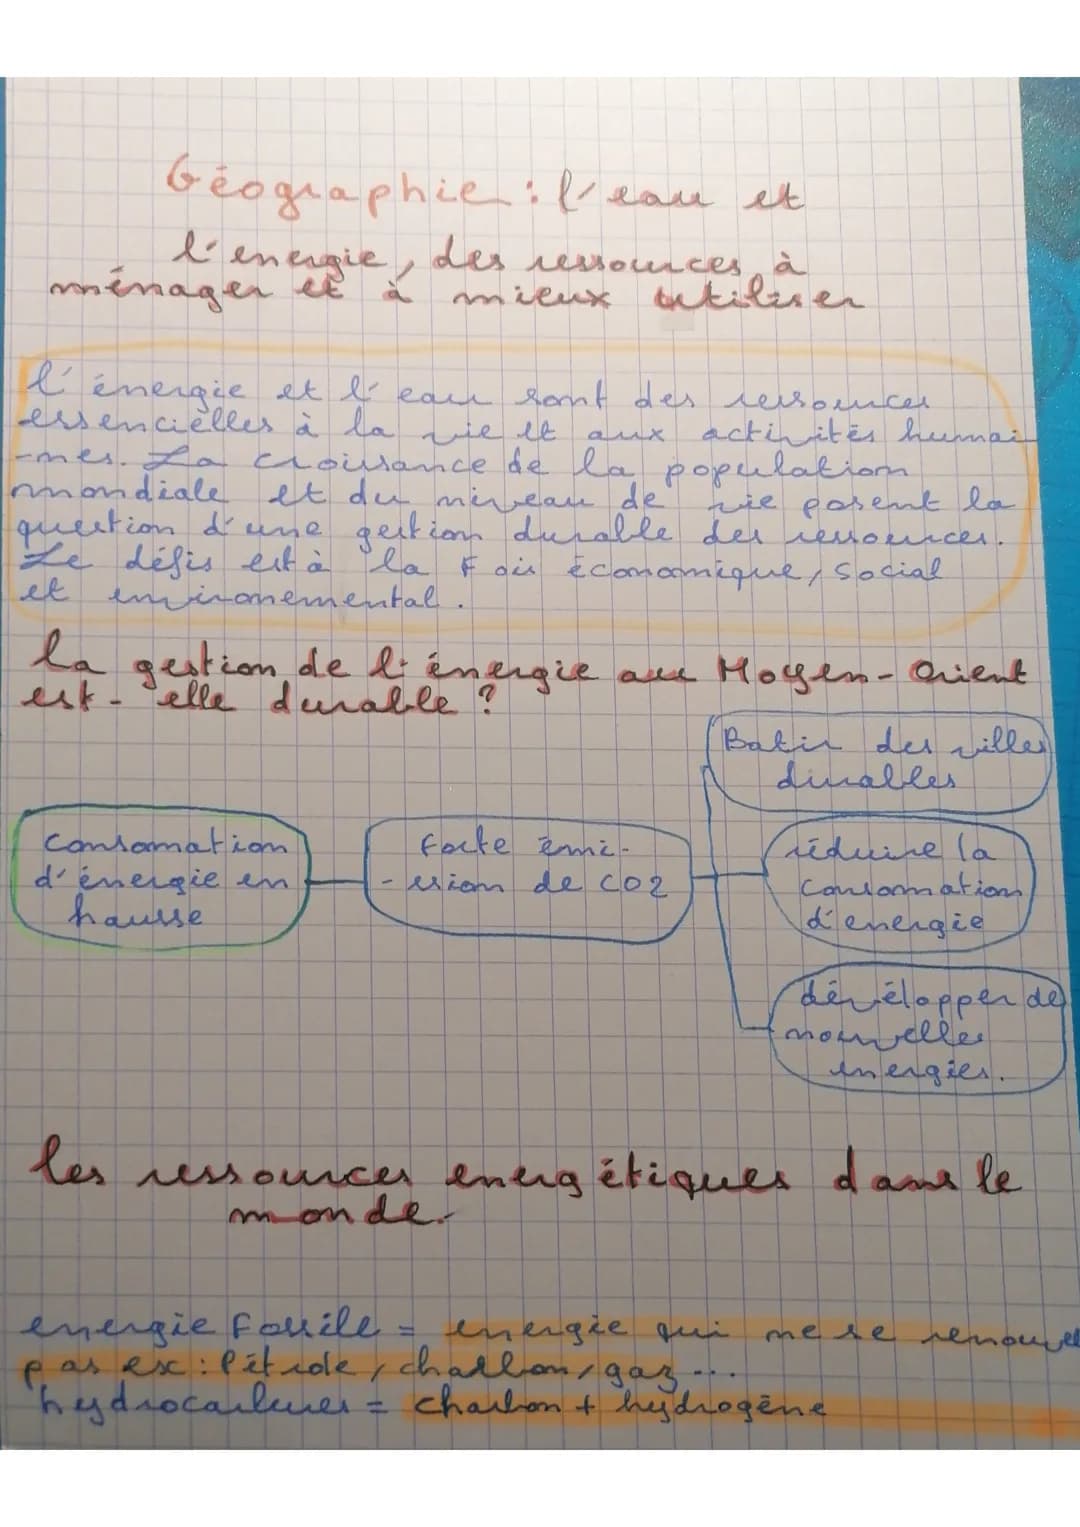 Géographie : l'eau et
l'energie, des ressources à
ménager et à mieux utiliser
l'énergie et l'eau sont des ressources
essencielles à la vie et aux activités humai
-nes. La croissance de la population
mondiale et du niveau de vie posent la
question d'une gestion durable des ressources.
Le défis est à la Fois économique, social
et environemental.
la gestion de l'énergie au Moyen-Orient
est-elle durable ?
Batir des villes
durables
Consomation
d'énergie en
hausse
forte émi-
-ssion de CO2
réduire la
consomation
d'energie
développer de
nouvelles
energies.
les ressources energétiques dans le
monde.
energie Fossile = energie qui ne se renouvel
pas ex : Pétrole, charbon, gaz...
hydrocarbures = charbon + hydrogène